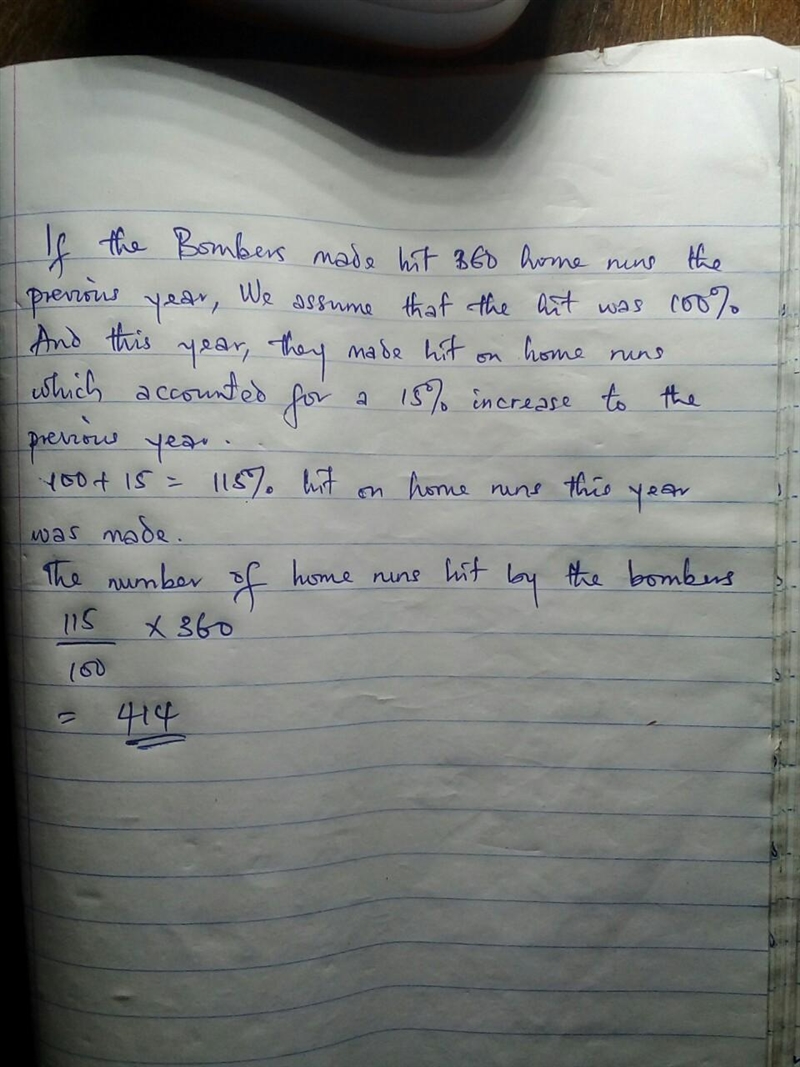 If the Bombers made hit 360 home runs the
previous year, We assume that the hit was 100%
And this year, they made hit on home runs
which accounted for a 15% increase to the
previous year.
100 + 15 = 115% hit on home runs this year
was made.
The number of home runs hit by the bombers
115/100 × 360
= 414